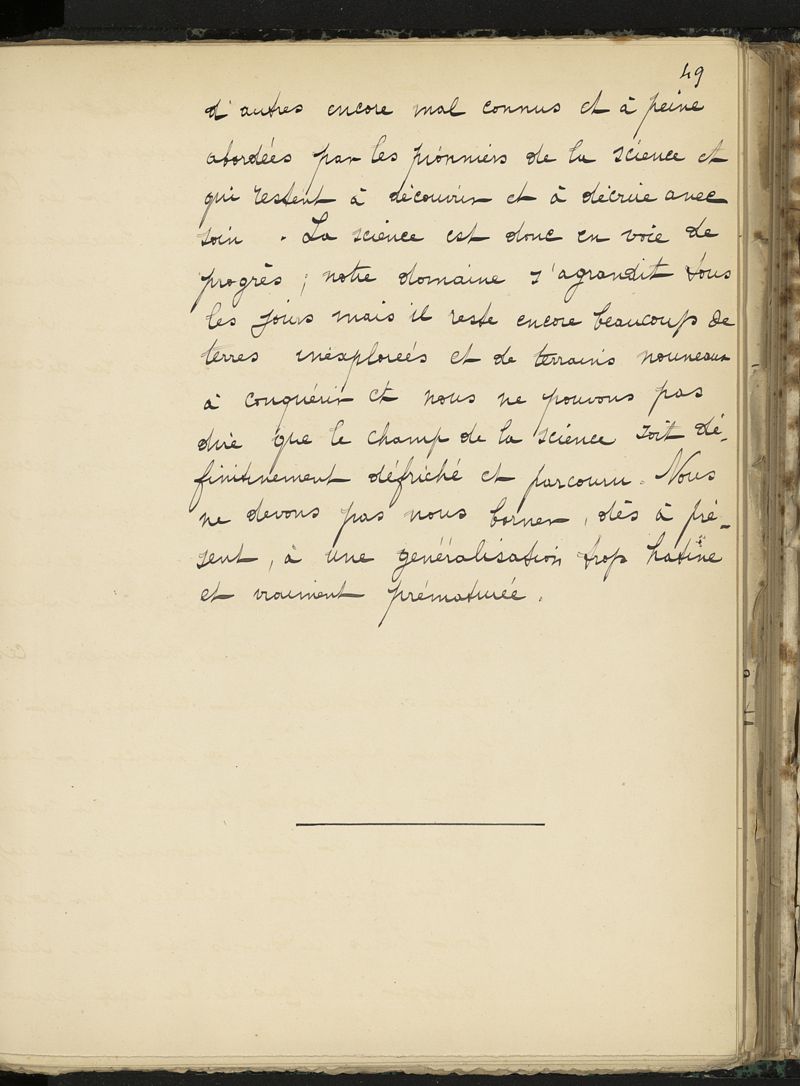 49
d'autres encore mal connus et à peine
abordées par les pionniers de la science et
qui restent à découvrir et à décrire avec
soin. La science est donc en voie de
progrès ; notre domaine s'agrandit tous
les jours mais il reste encore beaucoup de
terres inexplorées et de terrains nouveaux
à conquérir et nous ne pouvons pas
dire que le champ de la science soit dé-
finitivement défriché et parcouru. Nous
ne devons pas nous borner, dès à pré-
sent, à une généralisation trop hative
et vraiment prématurée.